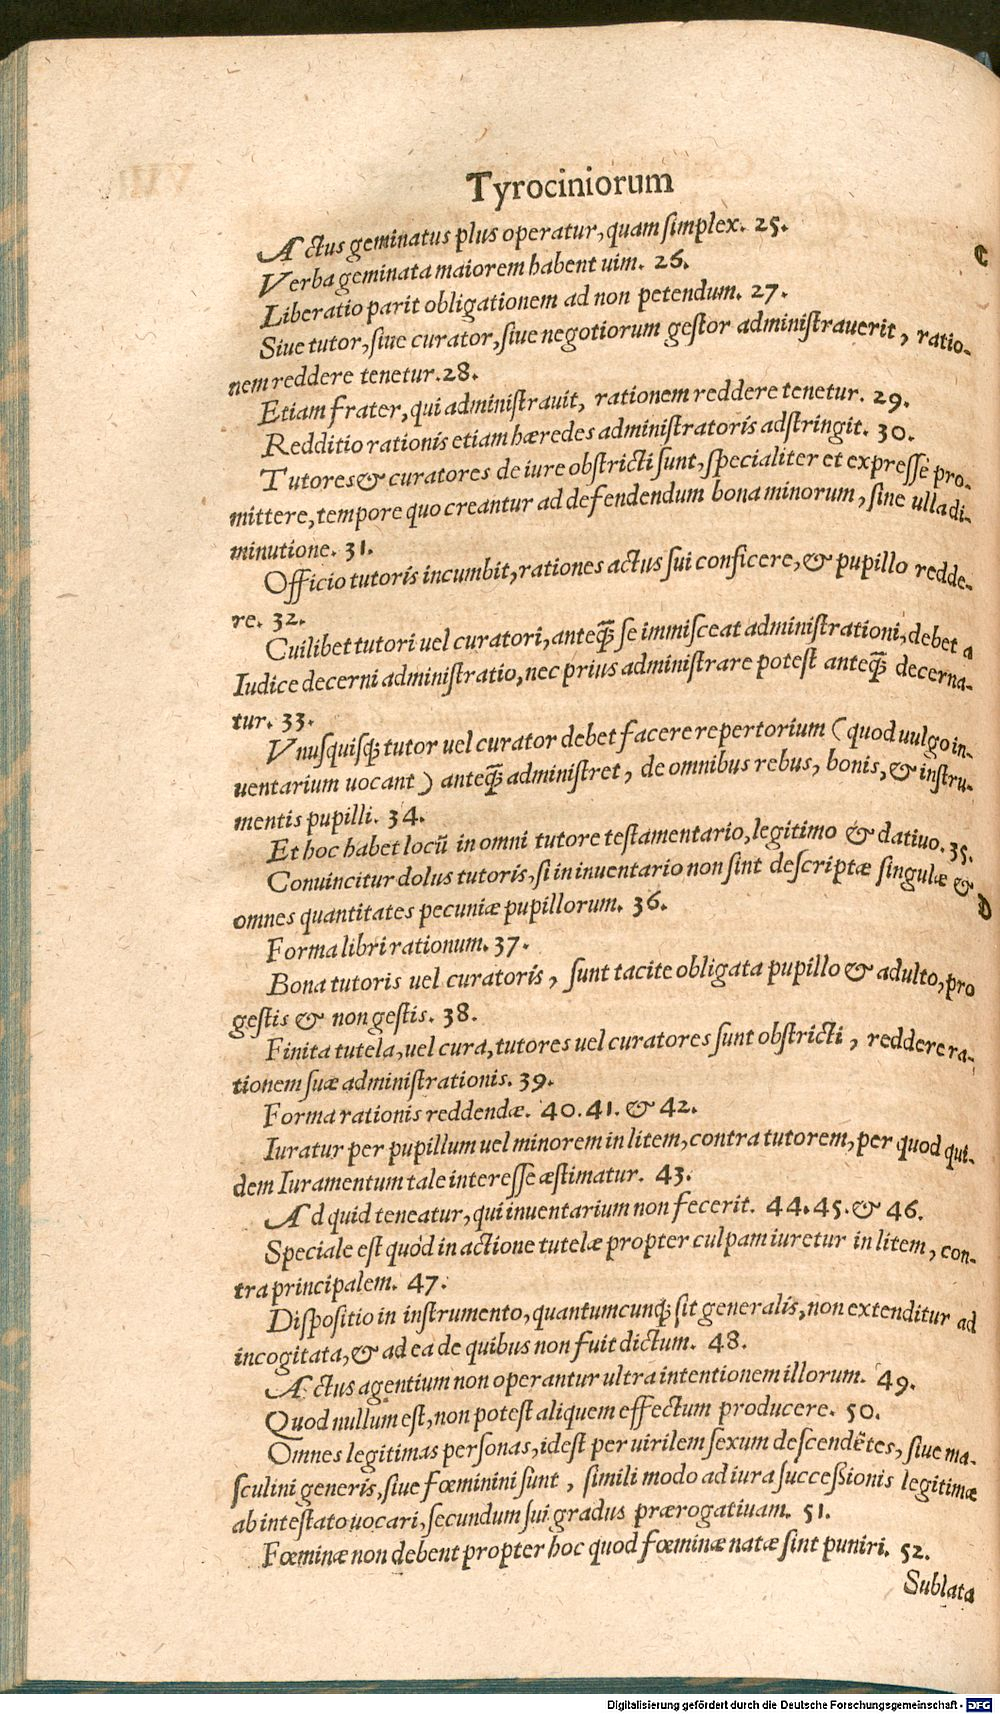 Tyrociniorum
Actus geminatus plus operatur, quam simplex. 25.
C
Verba geminata maiorem habent uim. 26.
Liberatio parit obligationem ad non petendum. 27.
Siue tutor, siue curator, siue negotiorum gestor administrauerit, ratio-
nem reddere tenetur. 28.
Etiam frater, qui administrauit, rationem reddere tenetur. 29.
Redditio rationis etiam hæredes administratoris adstringit. 30.
Tutores & curatores de iure obstricti sunt, specialiter et expressè pro-
mittere, tempore quo creantur ad defendendum bona minorum, sine ulla di-
minutione. 31.
Officio tutoris incumbit, rationes actus sui conficere, & pupillo redde-
re. 32.
Cuilibet tutori uel curatori, anteq̃ se immisceat administrationi, debet a
Iudice decerni administratio, nec prius administrare potest anteq̃ decerna-
tur. 33.
Vnusquisq; tutor uel curator debet facere repertorium (quod uulgo in-
uentarium uocant) anteq̃ administret, de omnibus rebus, bonis, & instru-
mentis pupilli. 34.
Et hoc habet locũ in omni tutore testamentario, legitimo & datiuo. 35.
Conuincitur dolus tutoris, si in inuentario non sint descriptæ singulæ &
D
omnes quantitates pecuniæ pupillorum. 36.
Forma libri rationum. 37.
Bona tutoris uel curatoris, sunt tacite obligata pupillo & adulto, pro
gestis & non gestis. 38.
Finita tutela, uel cura, tutores uel curatores sunt obstricti, reddere ra-
tionem suæ administrationis. 39.
Forma rationis reddendæ. 40. 41. & 42.
Iuratur per pupillum uel minorem in litem, contra tutorem, per quod qui-
dem Iuramentum tale interesse æstimatur. 43.
Ad quid teneatur, qui inuentarium non fecerit. 44. 45. & 46.
Speciale est quòd in actione tutelæ propter culpam iuretur in litem, con-
tra principalem. 47.
Dispositio in instrumento, quantumcunq; sit generalis, non extenditur ad
incogitata, & ad ea de quibus non fuit dictum. 48.
Actus agentium non operantur ultra intentionem illorum. 49.
Quod nullum est, non potest aliquem effectum producere. 50.
Omnes legitimas personas, idest per uirilem sexum descendẽtes, siue ma-
sculini generis, siue fœminini sunt, simili modo ad iura successionis legitimæ
ab intestato uocari, secundum sui gradus prærogatiuam. 51.
Fœminæ non debent propter hoc quod fœminæ natæ sint puniri. 52.
Sublata
Digitalisierung gefördert durch die Deutsche Forschungsgemeinschaft - DFG